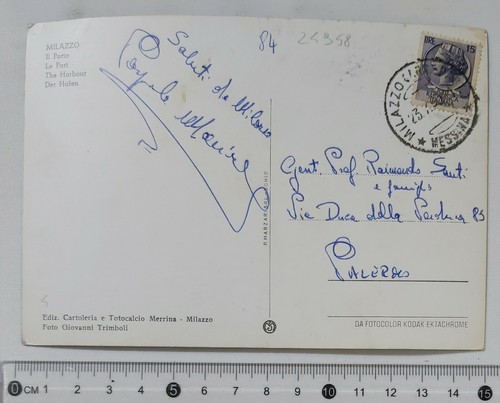 MILAZZO
Il Porto
Le Port
The Harbour
Der Hafen
84
24398
Saluti da Milazzo
LIRE 15
MILAZZO
MESSINA
Gent. Prof. Raimondo Santi
e famiglia
Via Duca della Verdura 83
PALERMO
Ediz. Cartoleria e Totocalcio Merrina - Milazzo
Foto Giovanni Trimboli
DA FOTOCOLOR KODAK EKTACHROME
0 CM 1 2 3 4 5 6 7 8 9 10 11 12 13 14 15